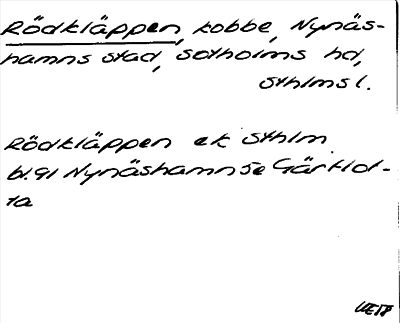 Rödkläppen, kobbe, Nynäs-
hamns stad, Sotholms hd,
Sthlms l.
Rödkläppen ek Sthlm
bl. 91 Nynäshamn 5e